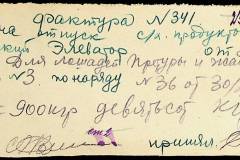 фактура № 341
на отпуск с/х. продуктов
Элеватор от
Для лошадей Пртуры и
№3. по наряду № 36 от 30/
= 900 кгр девятьсот
принял